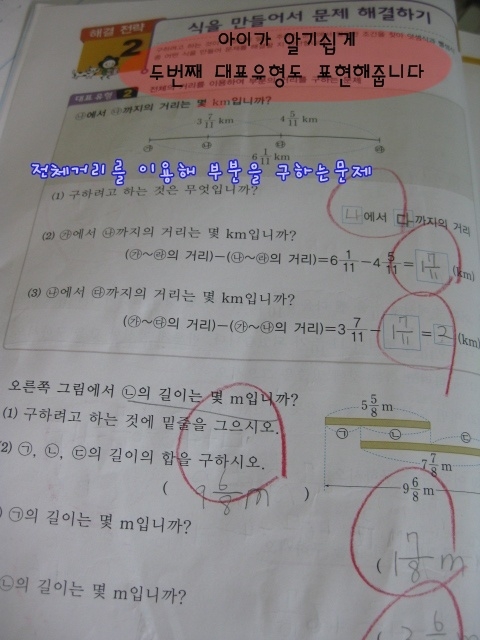 해결 전략
2
식을 만들어서 문제 해결하기
아이가 알기쉽게
두번째 대표유형도 표현해줍니다
대표유형 2
㉮에서 ㉰까지의 거리는 몇 km입니까?
3 7/11 km
4 5/11 km
㉮ ㉯ ㉰ ㉱
6 1/11 km
전체거리를 이용해 부분을 구하는문제
(1) 구하려고 하는 것은 무엇입니까?
나에서 다까지의 거리
(2) ㉮에서 ㉯까지의 거리는 몇 km입니까?
(㉮~㉱의 거리)-(㉯~㉱의 거리)=6 1/11-4 5/11=1 7/11(km)
(3) ㉯에서 ㉰까지의 거리는 몇 km입니까?
(㉮~㉰의 거리)-(㉮~㉯의 거리)=3 7/11-1 7/11=2(km)
오른쪽 그림에서 ㉡의 길이는 몇 m입니까?
5 5/8 m
(1) 구하려고 하는 것에 밑줄을 그으시오.
㉠ ㉡ ㉢
7 7/8 m
(2) ㉠, ㉡, ㉢의 길이의 합을 구하시오.
9 6/8 m
( 9 6/8 m )
㉠의 길이는 몇 m입니까?
( 1 7/8 m
㉡의 길이는 몇 m입니까?